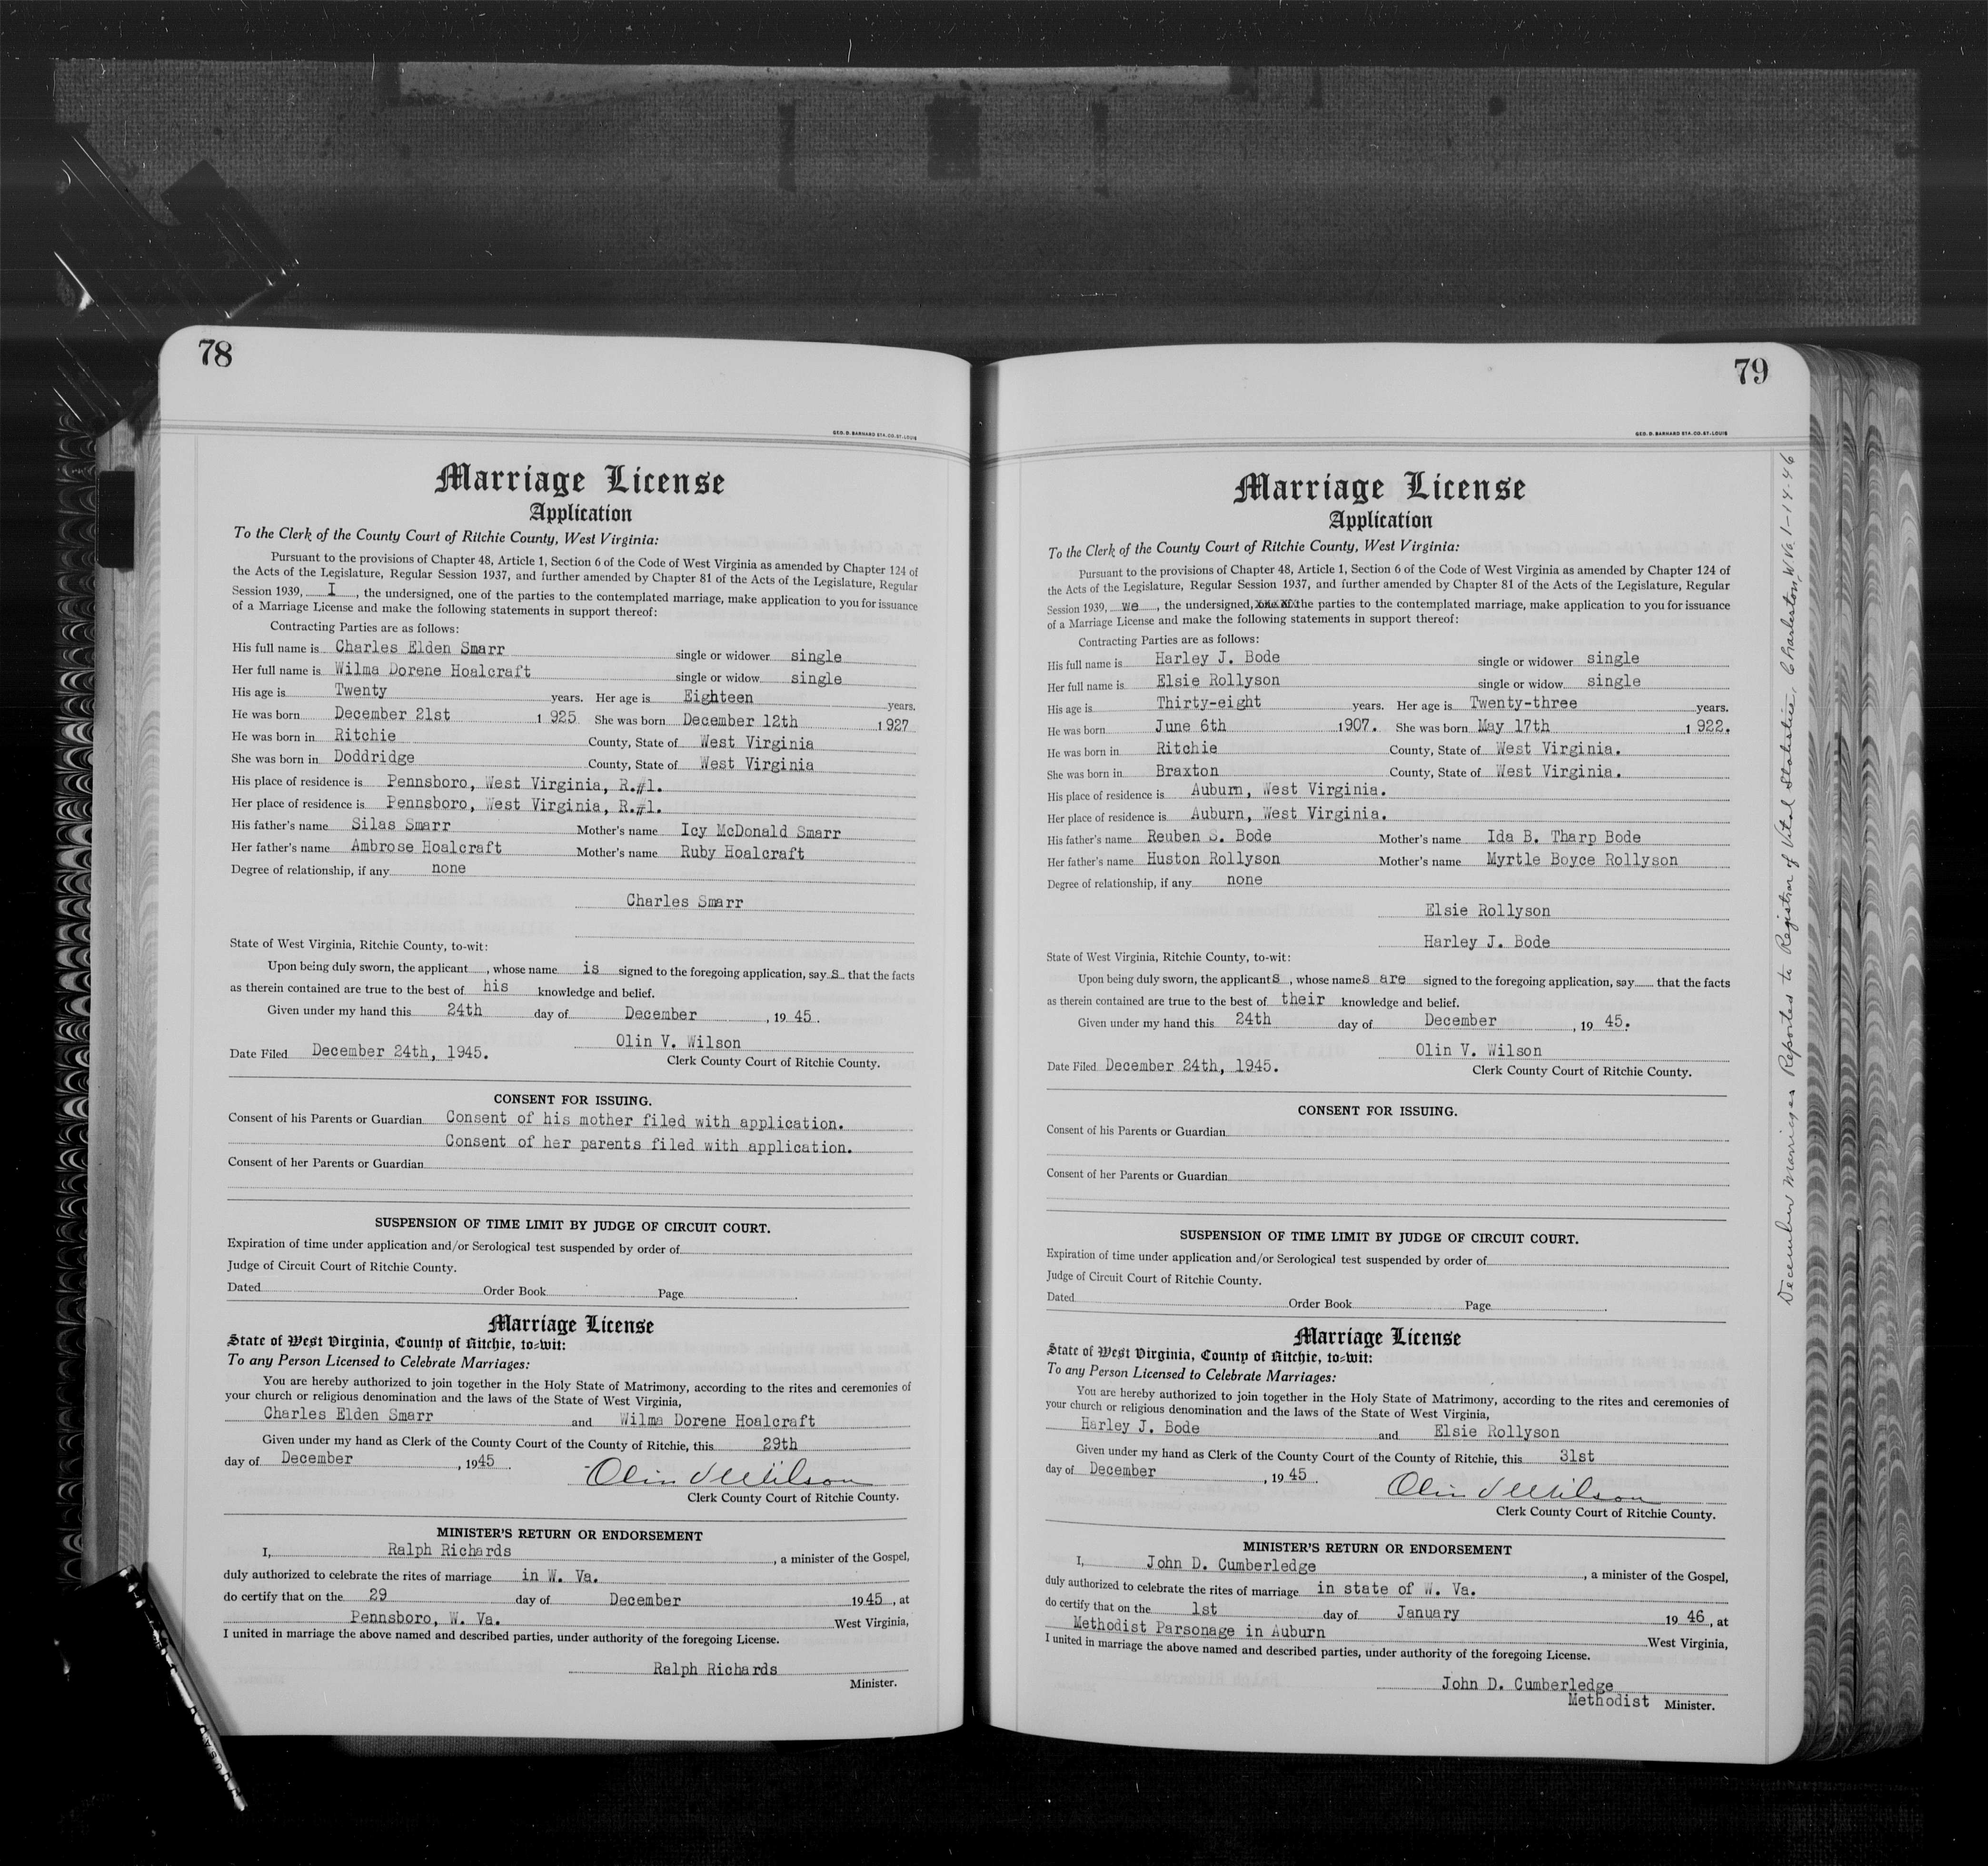 78
GEO. D. BARNARD STA. CO. ST. LOUIS
Marriage License
Application
To the Clerk of the County Court of Ritchie County, West Virginia:
Pursuant to the provisions of Chapter 48, Article 1, Section 6 of the Code of West Virginia as amended by Chapter 124 of
the Acts of the Legislature, Regular Session 1937, and further amended by Chapter 81 of the Acts of the Legislature, Regular
Session 1939, I, the undersigned, one of the parties to the contemplated marriage, make application to you for issuance
of a Marriage License and make the following statements in support thereof:
Contracting Parties are as follows:
His full name is Charles Elden Smarr single or widower single
Her full name is Wilma Dorene Hoalcraft single or widow single
His age is Twenty years. Her age is Eighteen years.
He was born December 21st 1 925 She was born December 12th 1 927
He was born in Ritchie County, State of West Virginia
She was born in Doddridge County, State of West Virginia
His place of residence is Pennsboro, West Virginia, R.#1.
Her place of residence is Pennsboro, West Virginia, R.#1.
His father's name Silas Smarr Mother's name Icy McDonald Smarr
Her father's name Ambrose Hoalcraft Mother's name Ruby Hoalcraft
Degree of relationship, if any none
Charles Smarr
State of West Virginia, Ritchie County, to-wit:
Upon being duly sworn, the applicant , whose name is signed to the foregoing application, say s that the facts
as therein contained are true to the best of his knowledge and belief.
Given under my hand this 24th day of December , 19 45.
Olin V. Wilson
Date Filed December 24th, 1945. Clerk County Court of Ritchie County.
CONSENT FOR ISSUING.
Consent of his Parents or Guardian Consent of his mother filed with application.
Consent of her parents filed with application.
Consent of her Parents or Guardian
SUSPENSION OF TIME LIMIT BY JUDGE OF CIRCUIT COURT.
Expiration of time under application and/or Serological test suspended by order of
Judge of Circuit Court of Ritchie County.
Dated Order Book Page .
Marriage License
State of West Virginia, County of Ritchie, to-wit:
To any Person Licensed to Celebrate Marriages:
You are hereby authorized to join together in the Holy State of Matrimony, according to the rites and ceremonies of
your church or religious denomination and the laws of the State of West Virginia,
Charles Elden Smarr and Wilma Dorene Hoalcraft
Given under my hand as Clerk of the County Court of the County of Ritchie, this 29th
day of December , 1945 .
Olin V Wilson
Clerk County Court of Ritchie County.
MINISTER'S RETURN OR ENDORSEMENT
I, Ralph Richards , a minister of the Gospel,
duly authorized to celebrate the rites of marriage in W. Va.
do certify that on the 29 day of December 1945 , at
Pennsboro, W. Va. West Virginia,
I united in marriage the above named and described parties, under authority of the foregoing License.
Ralph Richards
Minister.
79
GEO. D. BARNARD STA. CO. ST. LOUIS
Marriage License
Application
To the Clerk of the County Court of Ritchie County, West Virginia:
Pursuant to the provisions of Chapter 48, Article 1, Section 6 of the Code of West Virginia as amended by Chapter 124 of
the Acts of the Legislature, Regular Session 1937, and further amended by Chapter 81 of the Acts of the Legislature, Regular
Session 1939, we , the undersigned, the parties to the contemplated marriage, make application to you for issuance
of a Marriage License and make the following statements in support thereof:
Contracting Parties are as follows:
His full name is Harley J. Bode single or widower single
Her full name is Elsie Rollyson single or widow single
His age is Thirty-eight years. Her age is Twenty-three years.
He was born June 6th 1907. She was born May 17th 1 922.
He was born in Ritchie County, State of West Virginia.
She was born in Braxton County, State of West Virginia.
His place of residence is Auburn, West Virginia.
Her place of residence is Auburn, West Virginia.
His father's name Reuben S. Bode Mother's name Ida B. Tharp Bode
Her father's name Huston Rollyson Mother's name Myrtle Boyce Rollyson
Degree of relationship, if any none
Elsie Rollyson
Harley J. Bode
State of West Virginia, Ritchie County, to-wit:
Upon being duly sworn, the applicants , whose names are signed to the foregoing application, say that the facts
as therein contained are true to the best of their knowledge and belief.
Given under my hand this 24th day of December , 19 45.
Olin V. Wilson
Date Filed December 24th, 1945. Clerk County Court of Ritchie County.
CONSENT FOR ISSUING.
Consent of his Parents or Guardian
Consent of her Parents or Guardian
SUSPENSION OF TIME LIMIT BY JUDGE OF CIRCUIT COURT.
Expiration of time under application and/or Serological test suspended by order of
Judge of Circuit Court of Ritchie County.
Dated Order Book Page .
Marriage License
State of West Virginia, County of Ritchie, to-wit:
To any Person Licensed to Celebrate Marriages:
You are hereby authorized to join together in the Holy State of Matrimony, according to the rites and ceremonies of
your church or religious denomination and the laws of the State of West Virginia,
Harley J. Bode and Elsie Rollyson
Given under my hand as Clerk of the County Court of the County of Ritchie, this 31st
day of December , 19 45 .
Olin V Wilson
Clerk County Court of Ritchie County.
MINISTER'S RETURN OR ENDORSEMENT
I, John D. Cumberledge , a minister of the Gospel,
duly authorized to celebrate the rites of marriage in state of W. Va.
do certify that on the 1st day of January 19 46 , at
Methodist Parsonage in Auburn West Virginia,
I united in marriage the above named and described parties, under authority of the foregoing License.
John D. Cumberledge
Methodist Minister.
December Marriages Reported to Registrar of Vital Statistics, Charleston, W.Va. 1-14-46